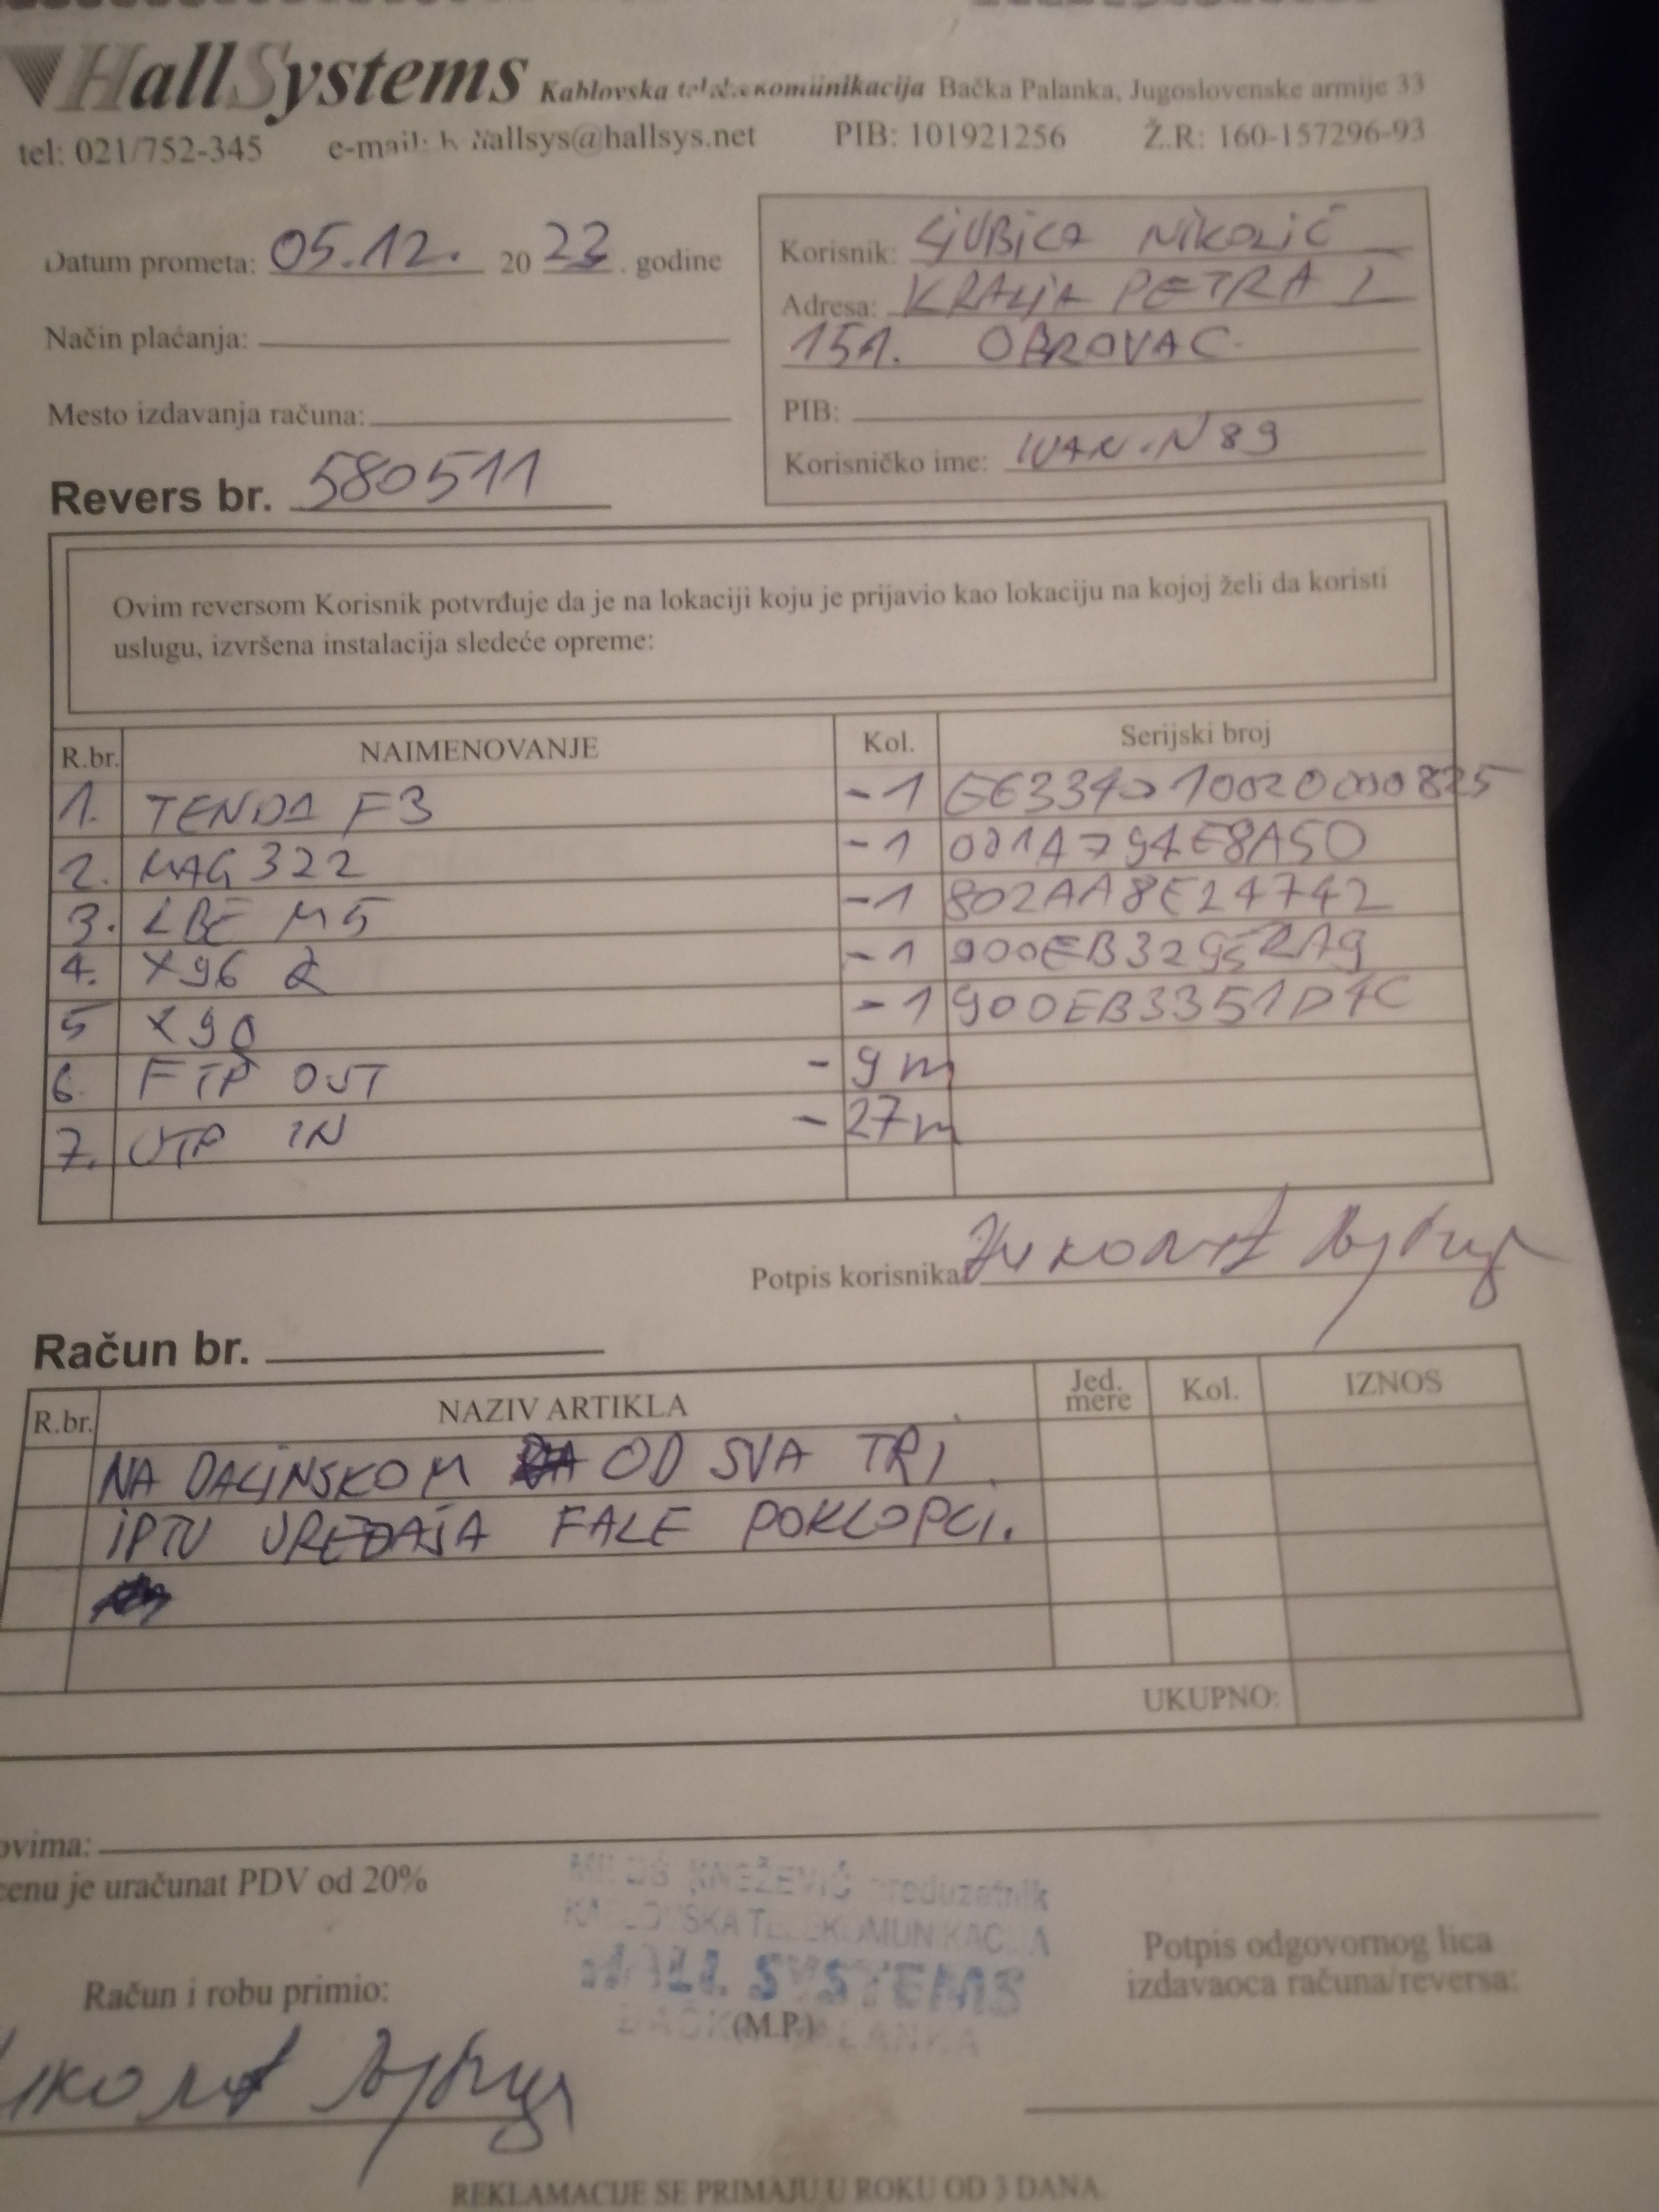 HallSystems Kablovska telekomunikacija Bačka Palanka, Jugoslovenske armije 33
tel: 021/752-345 e-mail: hallsys@hallsys.net PIB: 101921256 Ž.R: 160-157296-93
Datum prometa: 05.12. 2023. godine
Način plaćanja:
Mesto izdavanja računa:
Revers br. 580511
Korisnik: LJUBICA NIKOLIĆ
Adresa: KRALJA PETRA I
151. OBROVAC
PIB:
Korisničko ime: IVAN.N89
Ovim reversom Korisnik potvrđuje da je na lokaciji koju je prijavio kao lokaciju na kojoj želi da koristi
uslugu, izvršena instalacija sledeće opreme:
R.br. NAIMENOVANJE Kol. Serijski broj
1. TENDA F3 -1
2. MAG 322 -1 001A794E8A50
3. LBE M5 -1 802AA8E24742
4. X96 -1
5 X90 -1 900EB3351D4C
6. FTP OUT - 9m
7. UTP IN - 27m
Potpis korisnika
Račun br.
R.br. NAZIV ARTIKLA Jed. mere Kol. IZNOS
NA DALJINSKOM OD SVA TRI
IPTV UREĐAJA FALE POKLOPCI.
UKUPNO:
ovima:
cenu je uračunat PDV od 20%
MILOŠ KNEŽEVIĆ preduzetnik
KABLOVSKA TELEKOMUNIKACIJA
HALL SYSTEMS
BAČKA PALANKA
(M.P.)
Račun i robu primio:
Potpis odgovornog lica
izdavaoca računa/reversa:
REKLAMACIJE SE PRIMAJU U ROKU OD 3 DANA.